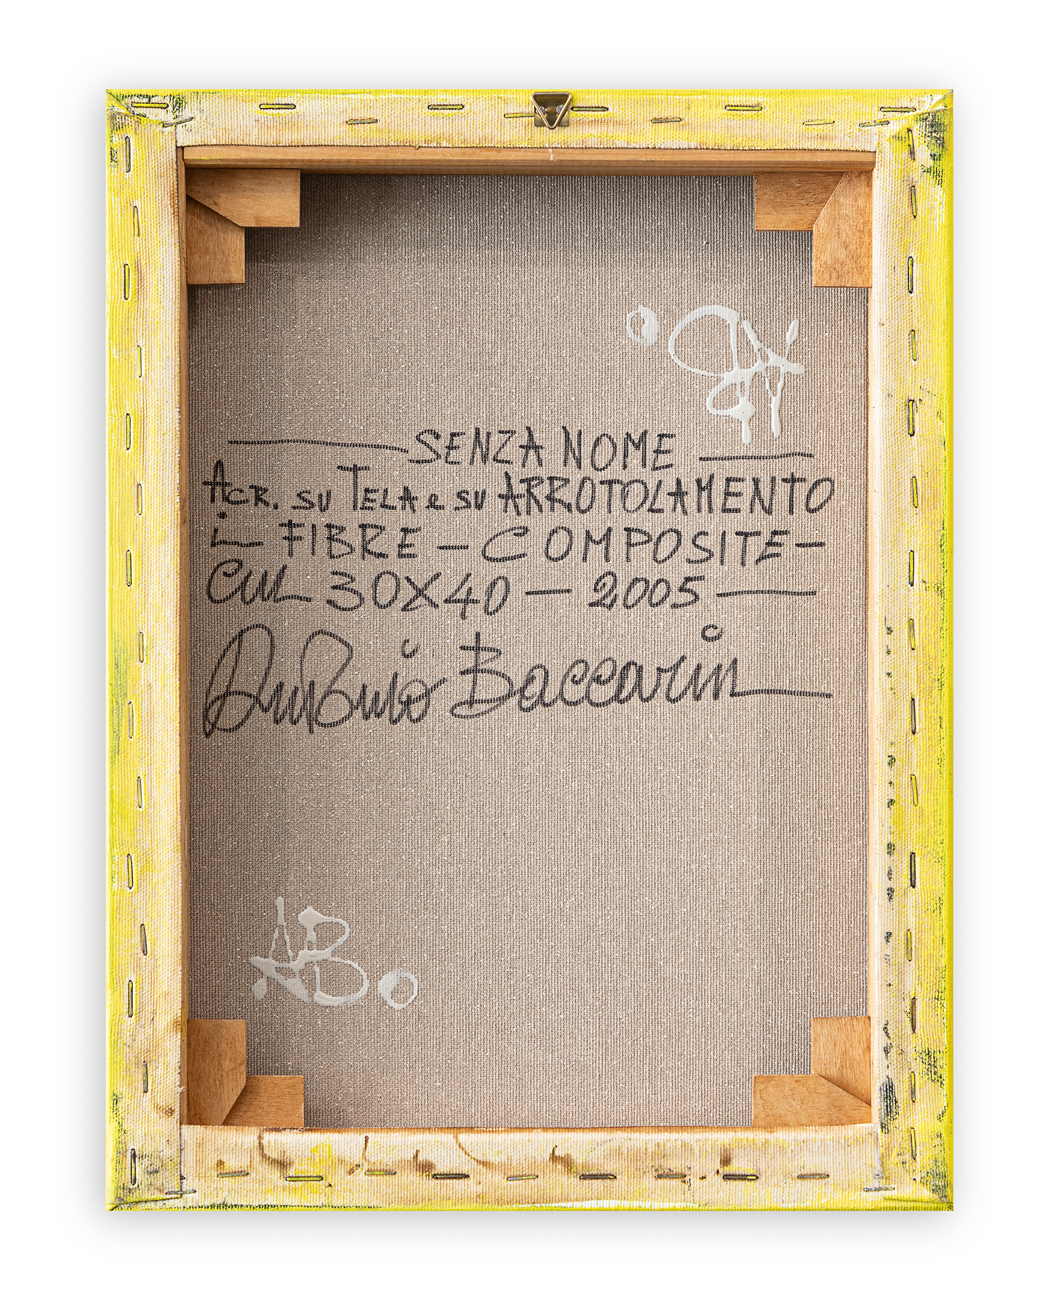 SENZA NOME
ACR. SU TELA e SU ARROTOLAMENTO
i- FIBRE - COMPOSITE -
30X40 - 2005
Antonio Baccarin
AB.